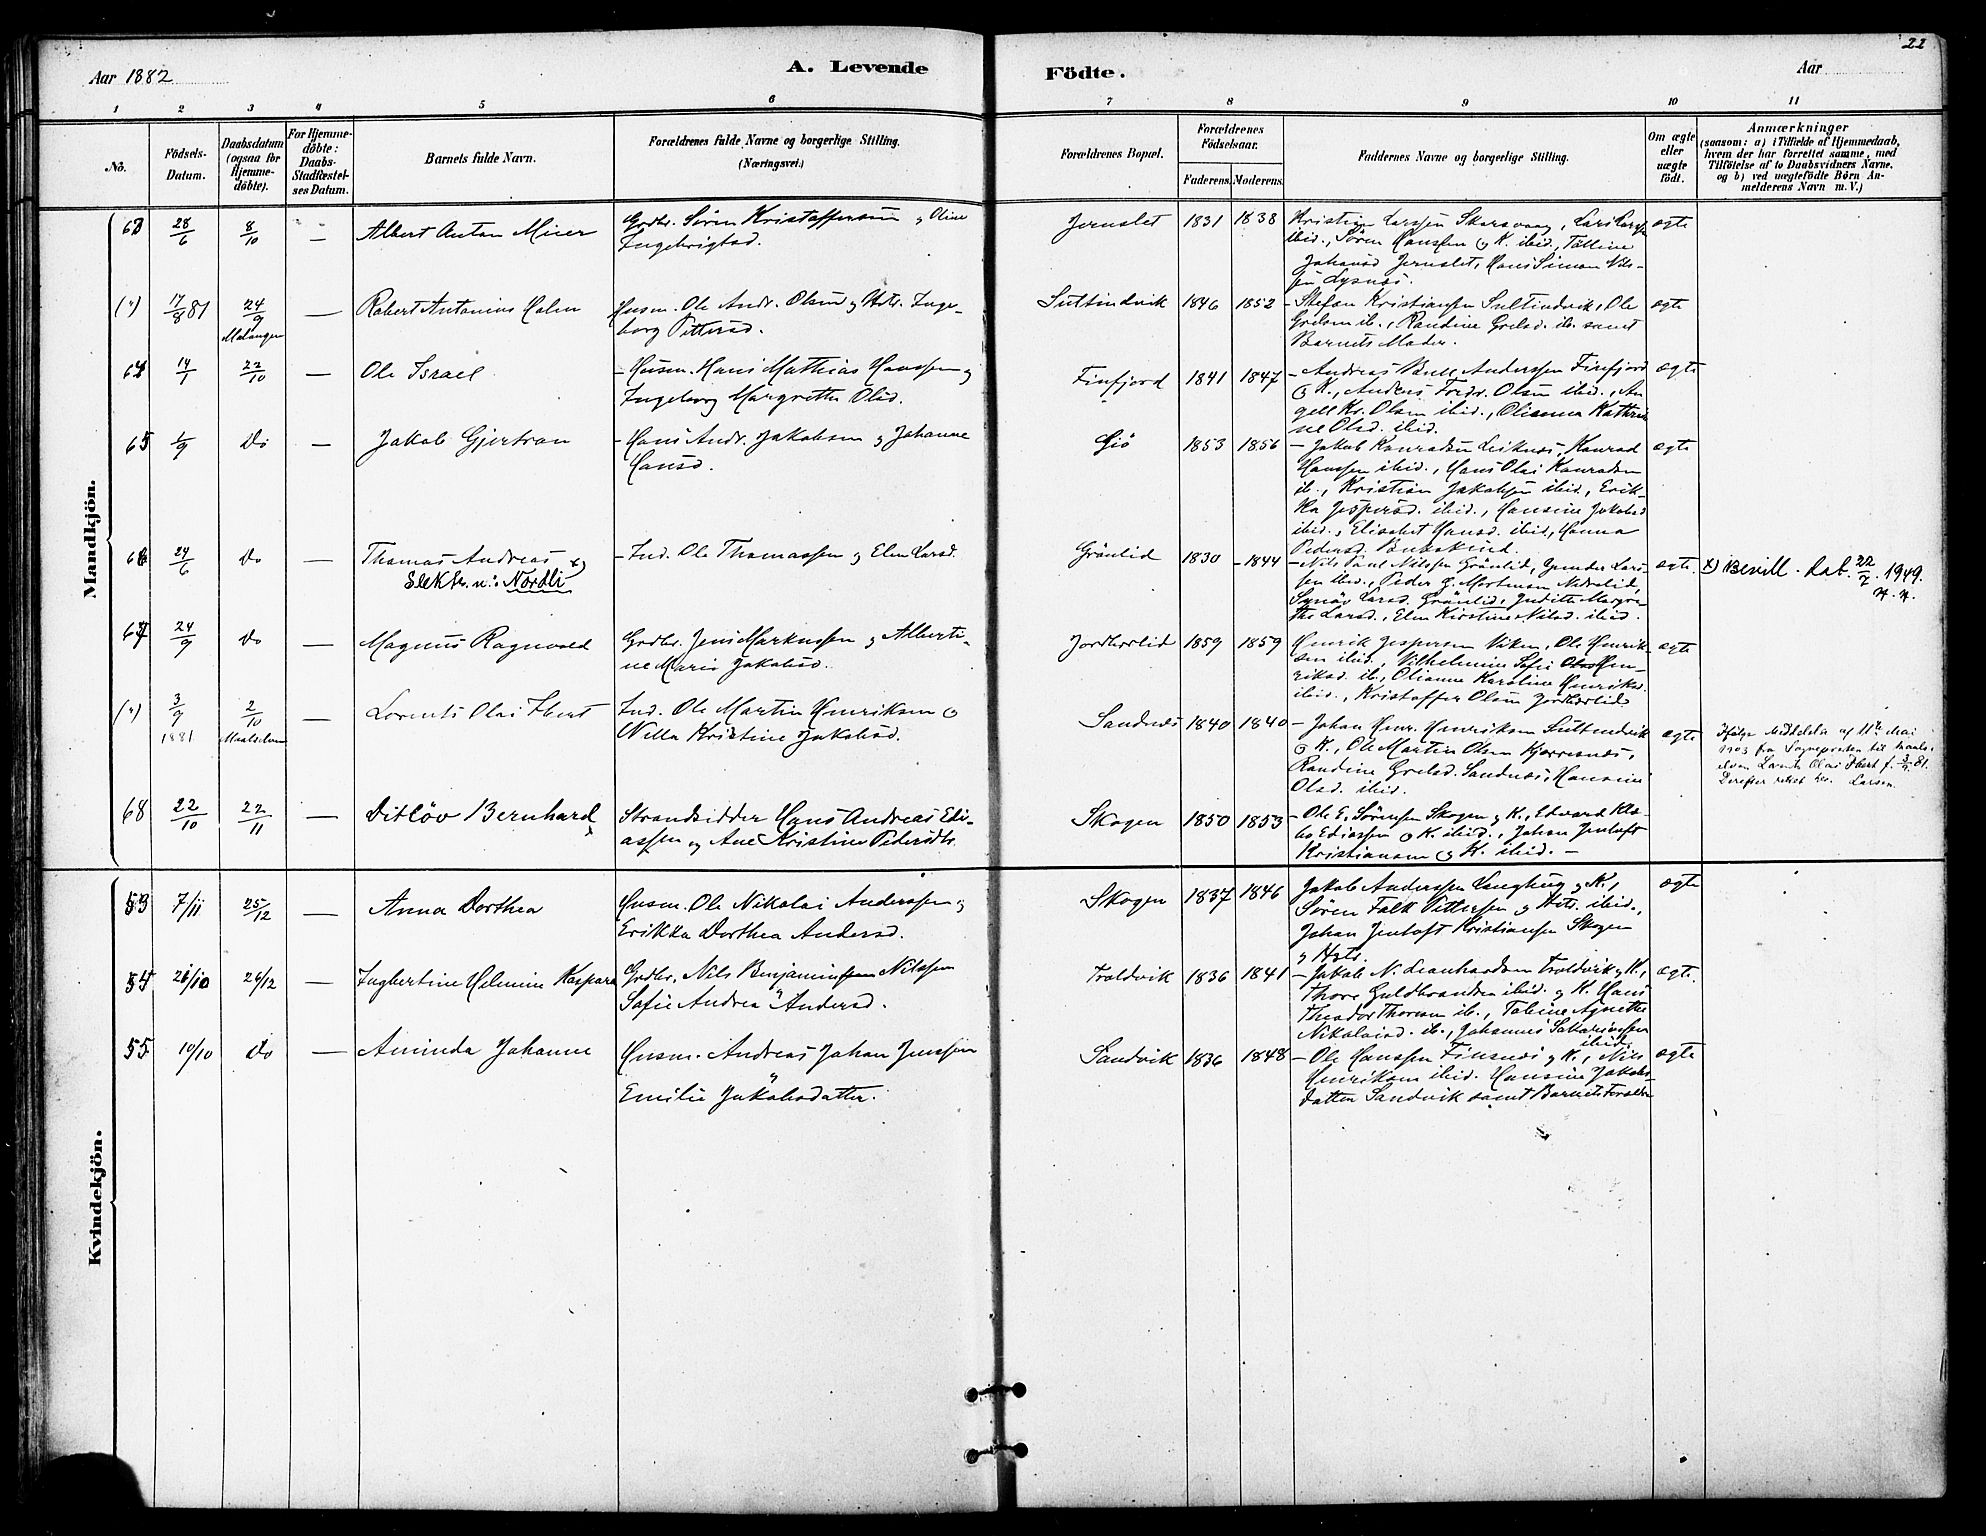 22
Aar 1882
A. Levende
Födte.
Aar
1 2 3 4 5 6 7 8 9 10 11
No.
Födsels-Datum.
Daabsdatum (ogsaa for Hjemme-döbte).
For Hjemme-döbte: Daabs-Stadfæstel-ses Datum.
Barnets fulde Navn.
Forældrenes fulde Navne og borgerlige Stilling.
(Næringsvei.)
Forældrenes Bopæl.
Forældrenes Födselsaar.
Faderens. Moderens.
Faddernes Navne og borgerlige Stilling.
Om ægte eller uægte födt.
Anmærkninger
(saasom: a) i Tilfælde af Hjemmedaab, hvem der har forrettet samme, med Tilföielse af to Daabsvidners Navne, og b) ved uægtefödte Börn An-melderens Navn m. V.)
Mandkjön.
63 28/6 8/10 — Albert Anton Meier
Grdbr. Søren Kristoffersen og Oline
Ingebrigtsd.
Jernslet 1831 1838
Kristian Larssen Skarsvaag, Lars Larssen
ibid., Søren Hanssen og K. ibid.,
Johansd Jernslet, Hans Simon Nils-
sen Lysnes.
ægte
(") 17/8 81 24/9 Malangen — Robert Antonius Holm
Husm. Ole Andr. Olsen og Hstr. Inge-
borg Pettersd.
Sultindvik 1846 1852
Stefan Kristiansen Sultindvik, Ole
ib., Randine ib. samt
Barnets Moder.
ægte
64 14/1 22/10 — Ole Israel
Husm. Hans Mathias Hanssen og
Ingeborg Margrethe Olsd.
Finfjord 1841 1847
Andreas Bull Anderssen Finfjord
og K., Anders Fredr. Olsen ibid., An-
gell Kr. Olsen ibid., Olianna Kathri-
ne Olsd. ibid.
ægte
65 1/9 Do — Jakob Gjertran
Hans Andr. Jakobsen og Johanne
Hansd.
Gjö 1853 1856
Jakob Konradsen Leiknes, Konrad
Hanssen ibid., Hans Olai Konradsen
ib., Kristian Jakobsen ibid., Erik-
ka Jespersd. ibid., Hansine Jakobsd
ibid., Elisabet Hansd. ibid., Hanna
Pedersd.
ægte
66 24/6 Do — Thomas Andreas x)
Slektsn.: Nordli
Ind. Ole Thomassen og Elen Larsd.
Grönlid 1830 1844
Nils Nilssen Grönlid, Gunder Lars-
sen ibid., Peder G. Mortensen
Synöv Larsd. Grönlid, Judith Margre-
the Larsd., Elen Kirstine Nilsd. ibid.
ægte.
x) Bevill. dat. 22/7. 1949.
67 24/9 Do — Magnus Ragnvald
Grdbr. Jens Markussen og Alberti-
ne Marie Jakobsd.
Jordbærlid 1859 1859
Henrik Jespersen Viken, Ole Henrik-
sen ibid., Vilhelmine Sofie Hen-
riksd. ib., Olianna Karoline Henriksd.
ibid., Kristoffer Olsen Jordbærlid
ægte
(") 3/9 1881 2/10 Maalselven — Lorents Olai Ebert
Ind. Ole Martin Henriksen og
Nella Kristine Jakobsd.
Sandnes 1840 1840
Johan Henr. Henriksen Sultindvik
og K., Ole Martin Olsen Kjerresnes,
Randine Sandnes, Hansine
Olsd. ibid.
ægte
Ifölge Meddelelse af 11te Mai
1903 fra Sognepresten til Maals-
elven Lorents Olai Ebert f. 3/9 81.
Derefter rettet her. Larsen.
68 22/10 22/11 — Ditlöv Bernhard
Strandsidder Hans Andreas Edi-
assen og Ane Kristine Pedersdtr.
Skogen 1850 1853
Ole E. Sörensen Skogen og K., Edvard Kla-
bo Ediassen og K. ibid., Johan Jentoft
Kristiansen og K. ibid. —
Kvindekjön.
53 7/11 25/12 — Anna Dorthea
Husm. Ole Nikolai Anderssen og
Erikka Dorthea Andersd.
Skogen 1837 1846
Jakob Anderssen og K.,
Søren Falk Pettersen og Hstr. ibid.,
Johan Jentoft Kristiansen Skogen
og Hstr.
ægte
54 26/10 26/12 — Ingbertine Helmine Kaspara
Grdbr. Nils Benjaminssen Nilssen
Sofie Andrea Andersd.
Troldvik 1836 1841
Jakob N. Leonhardsen Troldvik og K.,
Thore Guldbrandsen ibid. og K. Hans
Theodor Thoresen ib., Tobine Agnethe
Nikolaisd. ib., Johannes Sakariassen
ibid.
ægte.
55. 10/10 Do — Aminda Johanne
Husm. Andreas Johan Jenssen
og
Emilie Jakobsdatter.
Sandvik 1836 1848
Ole Hanssen Finsnes og K., Nils
Henriksen ibid. Hansine Jakobs-
datter Sandvik samt Barnets Forældre
ægte